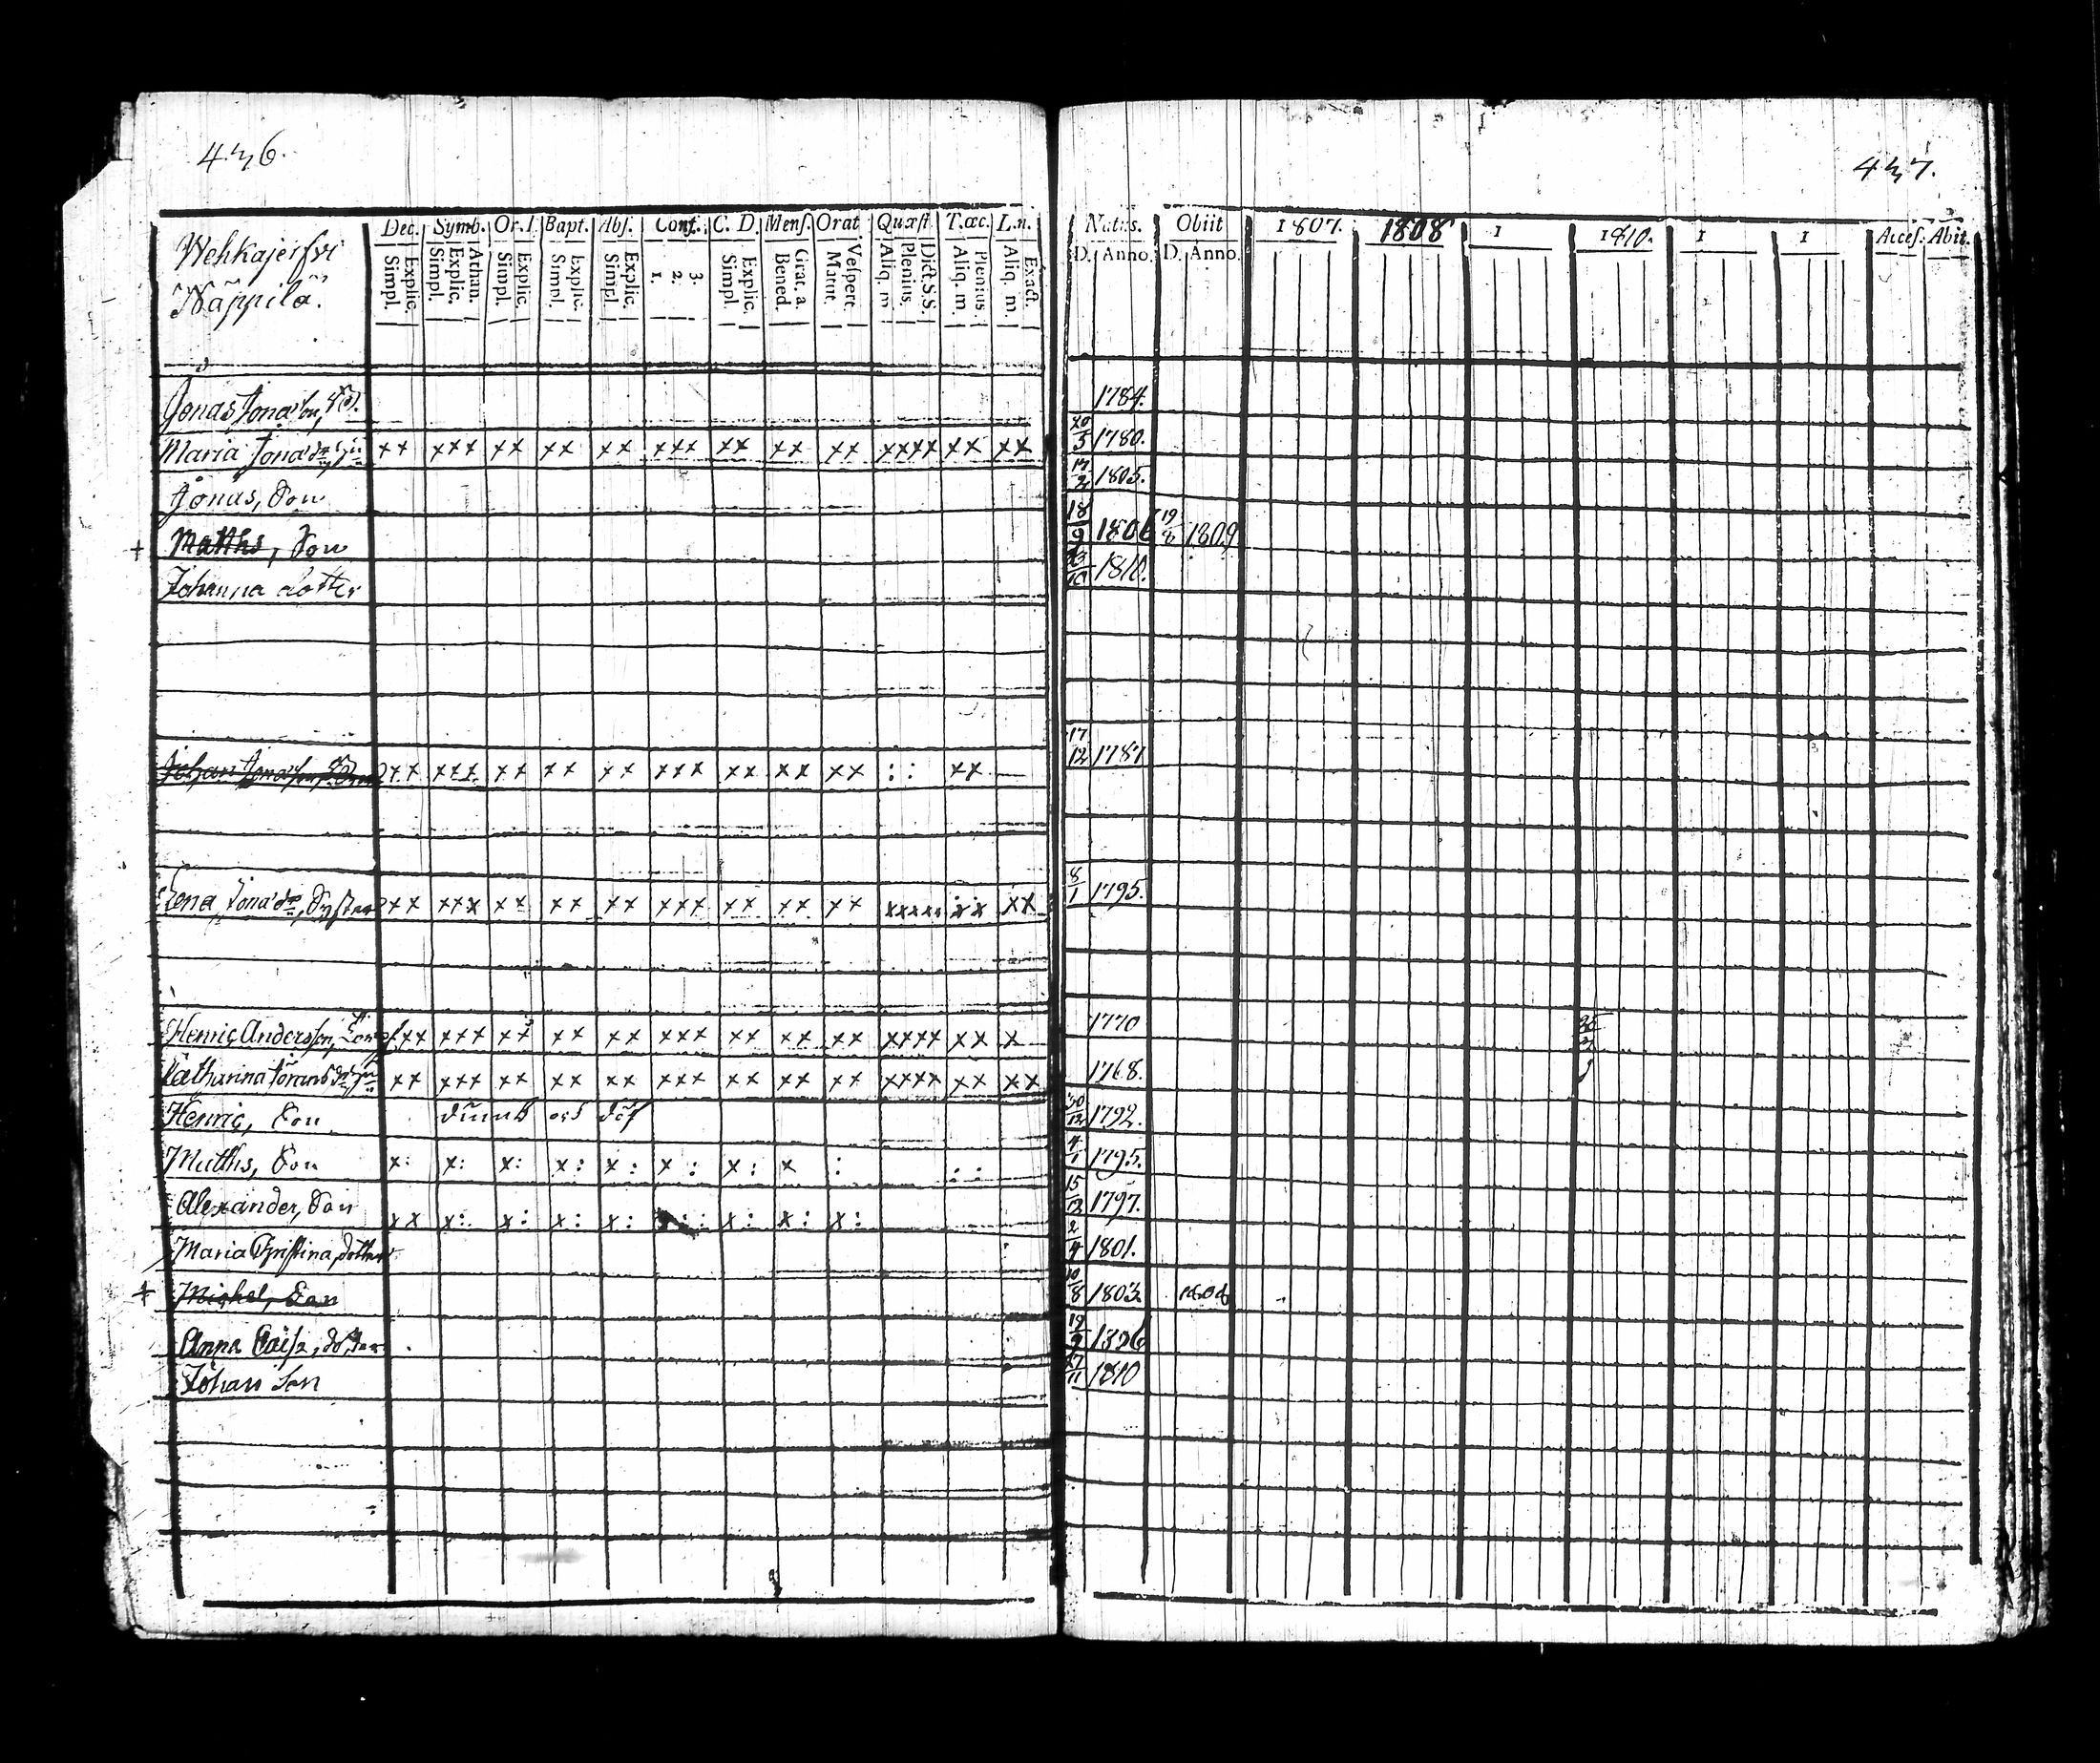 436.
437.
Wehkajerfvi
Näppilä.
Dec. Symb. Or. I. Bapt. Abs. Conf. C. D. Mens. Orat. Quæst. T. œc. L. n.
Explic. Simpl. Athan. Explic. Simpl. Explic. Simpl. Explic. Simpl. Explic. Simpl. 3. 2. 1. Explic. Simpl. Grat. a. Bened. Vespert. Matut. Dict. S.S. Plenius. Aliq. m. Plenius. Aliq. m. Exact. Aliq. m.
Natus. Obiit 1807. 1808 1 1810. 1 1 Acces. Abit.
D. Anno. D. Anno.
Jonas Jonasson, 1784.
Maria Jonasdr hu xx xxx xx xx xx xxx xx xx xx xxxx xx xx 20/5 1780.
Jonas, Son 17/2 1805.
+ Matths, Son 18/9 1806 19/8 1809
Johanna dotter 1810.
Johan Jonasson xxx xxx xx xx xx xxx xx xx xx : : xx 17/12 1787
Lena Jonasdr, Syster xx xxx xx xx xx xxx xx xx xx xxxxx xx xx 8/1 1795.
Henric Andersson, xx xxx xx xx xx xxx xx xx xx xxxx xx x 1770
Catharina Göransdr hu xx xxx xx xx xx xxx xx xx xx xxxx xx xx 1768.
Henric, Son dumb och döf 30/12 1792.
Matths, Son x: x: x: x: x: x: x: x : : : 4/1 1795.
Alexander, Son xx x: x: x: x: x: x: x: 15/12 1797.
Maria Christina, dotter 2/4 1801.
+ Michel, Son 10/8 1803.
Anna Caisa, dotter 19/9 1806
Johan son 27/11 1810